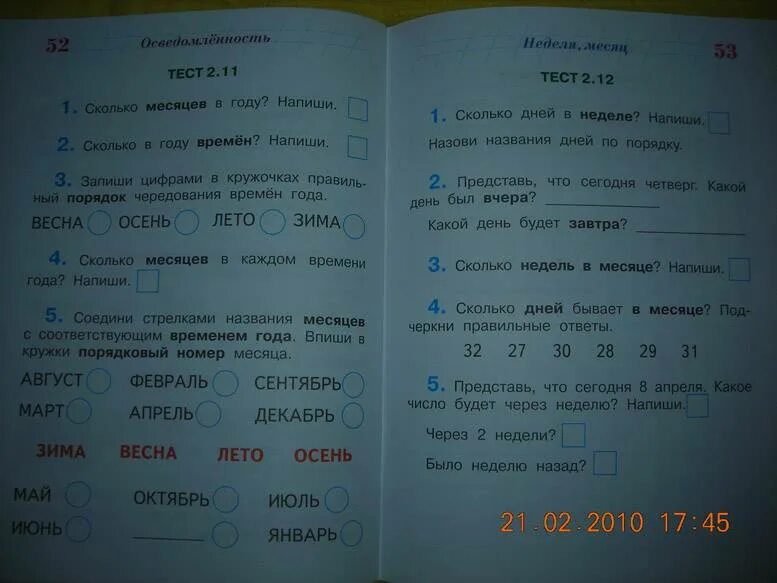 52
Осведомлённость
ТЕСТ 2.11
1. Сколько месяцев в году? Напиши.
2. Сколько в году времён? Напиши.
3. Запиши цифрами в кружочках правиль-
ный порядок чередования времён года.
ВЕСНА ОСЕНЬ ЛЕТО ЗИМА
4. Сколько месяцев в каждом времени
года? Напиши.
5. Соедини стрелками названия месяцев
с соответствующим временем года. Впиши в
кружки порядковый номер месяца.
АВГУСТ ФЕВРАЛЬ СЕНТЯБРЬ
МАРТ АПРЕЛЬ ДЕКАБРЬ
ЗИМА ВЕСНА ЛЕТО ОСЕНЬ
МАЙ ОКТЯБРЬ ИЮЛЬ
ИЮНЬ ЯНВАРЬ
Неделя, месяц
53
ТЕСТ 2.12
1. Сколько дней в неделе? Напиши.
Назови названия дней по порядку.
2. Представь, что сегодня четверг. Какой
день был вчера?
Какой день будет завтра?
3. Сколько недель в месяце? Напиши.
4. Сколько дней бывает в месяце? Под-
черкни правильные ответы.
32 27 30 28 29 31
5. Представь, что сегодня 8 апреля. Какое
число будет через неделю? Напиши.
Через 2 недели?
Было неделю назад?
21.02.2010 17:45